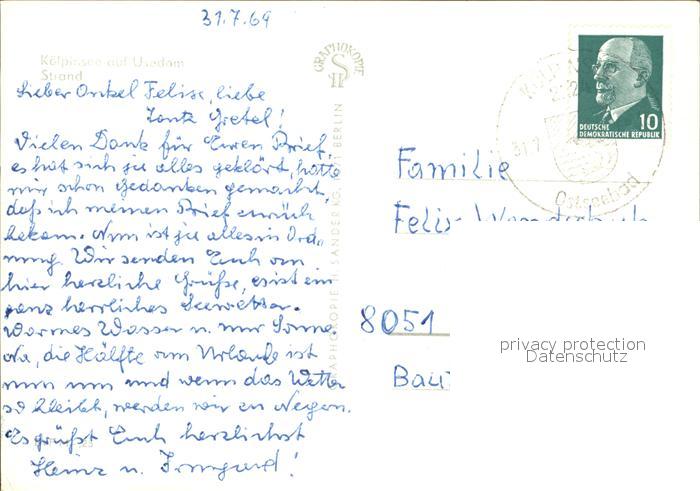 31.7.69
Kölpinsee auf Usedom
Strand
Lieber Onkel Felix, liebe
Tante Gretel!
Vielen Dank für Euren Brief,
es hat sich ja alles geklärt, hatte
mir schon Gedanken gemacht,
daß ich meinen Brief zurück
bekam. Nun ist ja alles in Ord-
nung. Wir senden Euch von
hier herzliche Grüße, es ist ein
ganz herrliches Seewetter.
Warmes Wasser u. nur Sonne.
Na, die Hälfte vom Urlaub ist
nun um und wenn das Wetter
so bleibt, werden wir zu Negern.
Es grüßt Euch herzlichst
Heinz u. Irmgard!
GRAPHOKOPIE
H S
GRAPHOKOPIE H. SANDER KG, BERLIN
DEUTSCHE
DEMOKRATISCHE REPUBLIK
10
31.7
Ostseebad
Familie
Felix
8051
privacy protection
Datenschutz